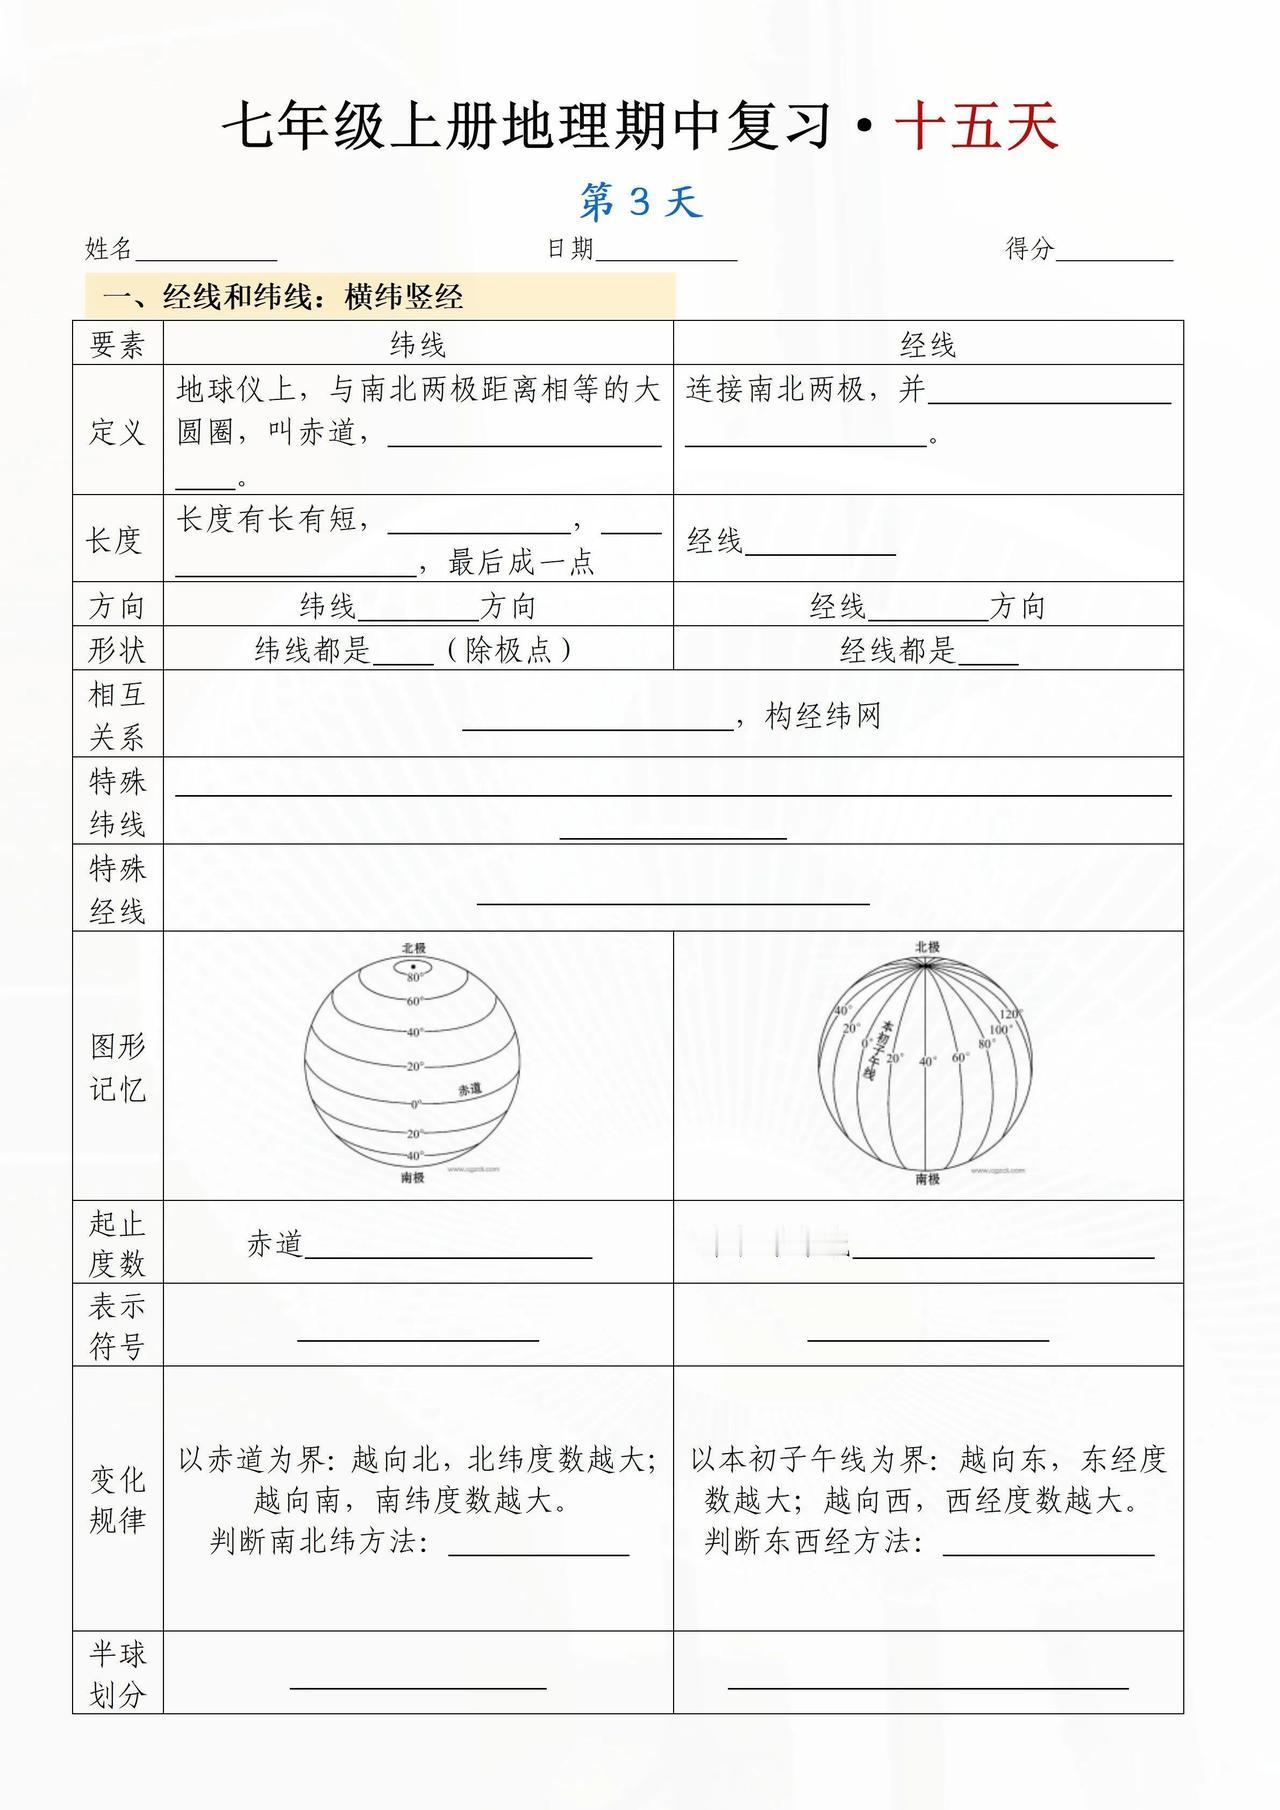 七年级上册地理期中复习·十五天
第3天
姓名__________ 日期__________ 得分__________
一、经线和纬线：横纬竖经
要素 纬线 经线
定义
地球仪上，与南北两极距离相等的大
圆圈，叫赤道，__________
____。
连接南北两极，并__________
__________。
长度
长度有长有短，__________，____
__________，最后成一点
经线__________
方向 纬线________方向 经线________方向
形状 纬线都是____（除极点） 经线都是____
相互
关系
__________，构经纬网
特殊
纬线
特殊
经线
图形
记忆
北极
80°
60°
40°
20°
赤道
0°
20°
40°
www.cgzdl.com
南极
北极
40°
20°
0°
本初子午线
20°
40°
60°
80°
100°
120°
www.cgzdl.com
南极
起止
度数
赤道__________
表示
符号
变化
规律
以赤道为界：越向北，北纬度数越大；
越向南，南纬度数越大。
判断南北纬方法：__________
以本初子午线为界：越向东，东经度
数越大；越向西，西经度数越大。
判断东西经方法：__________
半球
划分